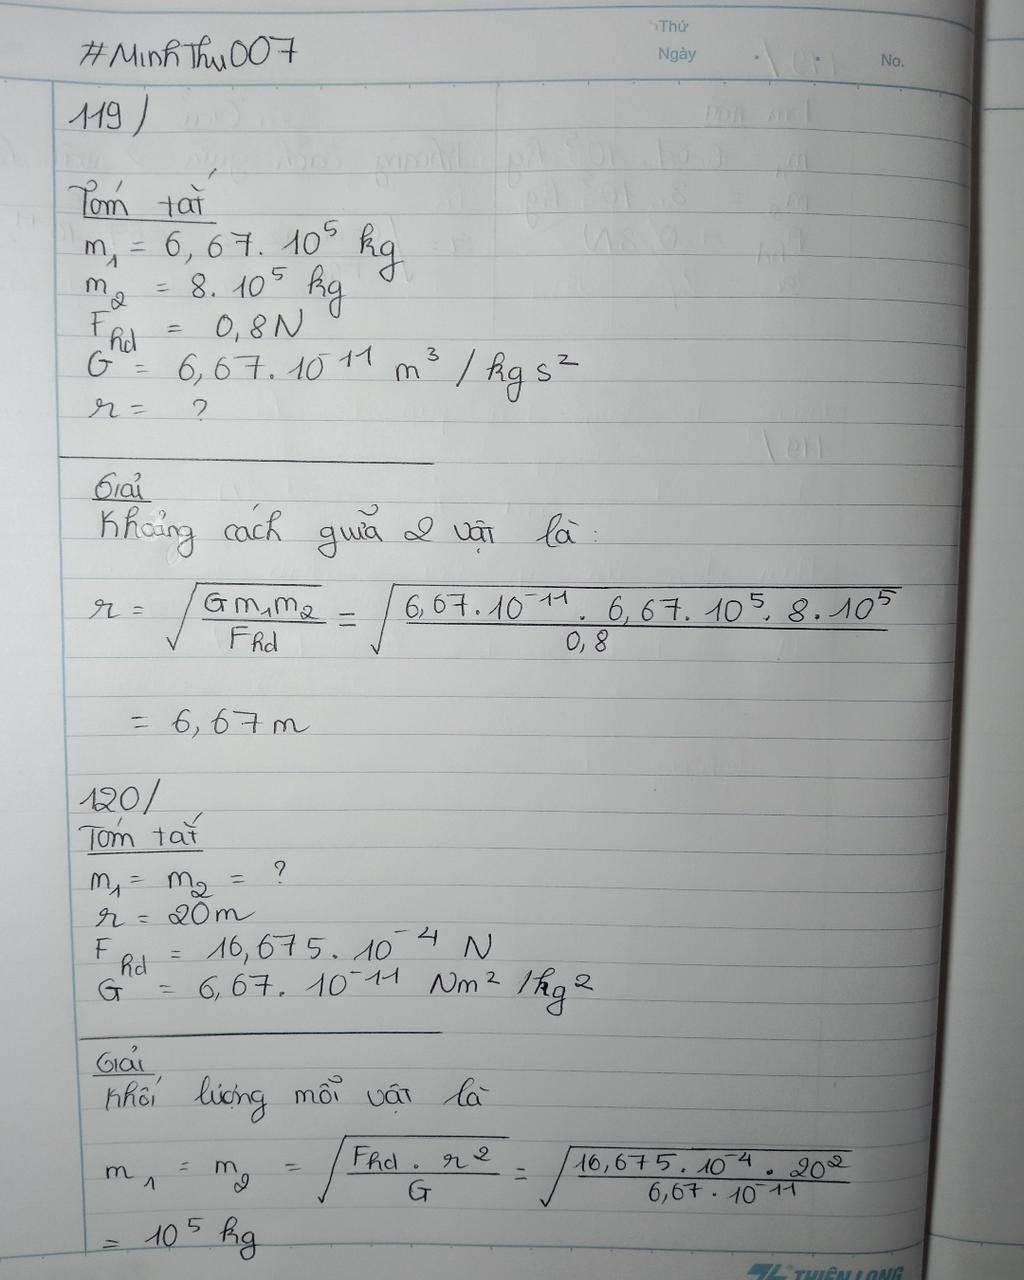 #MinhThu007
Thứ
Ngày
No.
119/
Tóm tắt
m₁ = 6,67. 10⁵ kg
m₂ = 8. 10⁵ kg
Fhd = 0,8N
G = 6,67. 10⁻¹¹ m³ / kg s²
r = ?
Giải
Khoảng cách giữa 2 vật là:
r = √(Gm₁m₂/Fhd) = √(6,67.10⁻¹¹ . 6,67. 10⁵. 8. 10⁵/0,8)
= 6,67 m
120/
Tóm tắt
m₁ = m₂ = ?
r = 20m
Fhd = 16,675. 10⁻⁴ N
G = 6,67. 10⁻¹¹ Nm² /kg²
Giải
Khối lượng mỗi vật là
m₁ = m₂ = √(Fhd . r²/G) = √(16,675.10⁻⁴ . 20²/6,67 . 10⁻¹¹)
= 10⁵ kg
THIÊN LONG